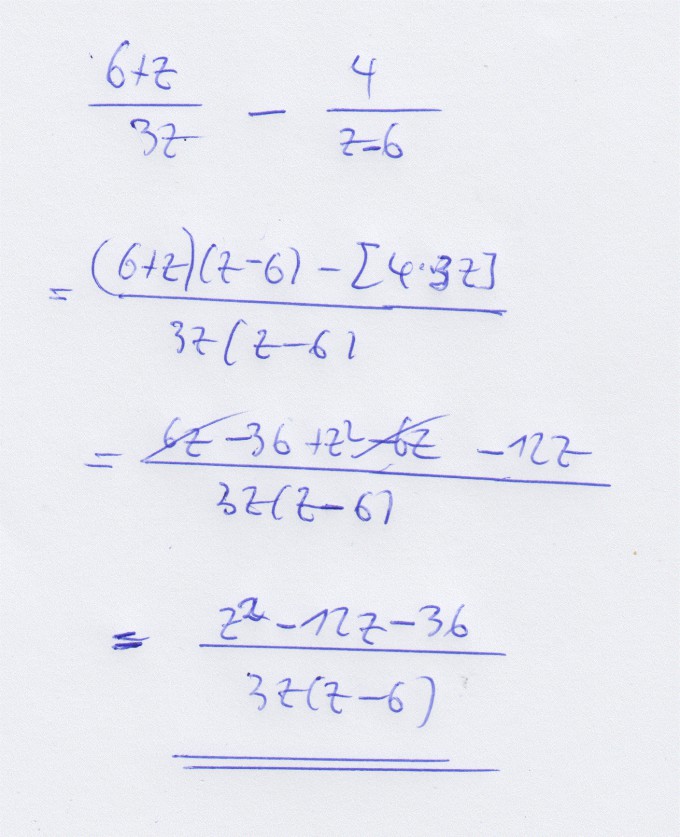 6+z
3z
−
4
z−6
= (6+z)(z−6) − [4·3z]
3z(z−6)
= 6z −36 +z² −6z −12z
3z(z−6)
= z² −12z −36
3z(z−6)